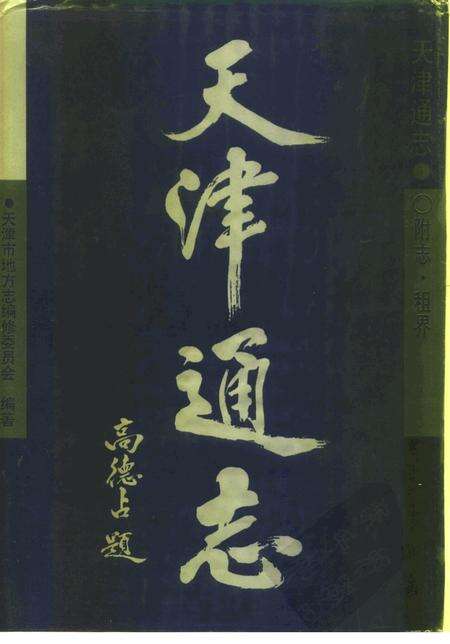 天津通志
高德占题
天津通志
附志·租界
●天津市地方志编修委员会 编著